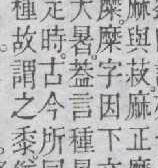 麻與芰麻正
糜。糜字因下
大暑。葢言種
定時。古今所
種。故謂之黍。